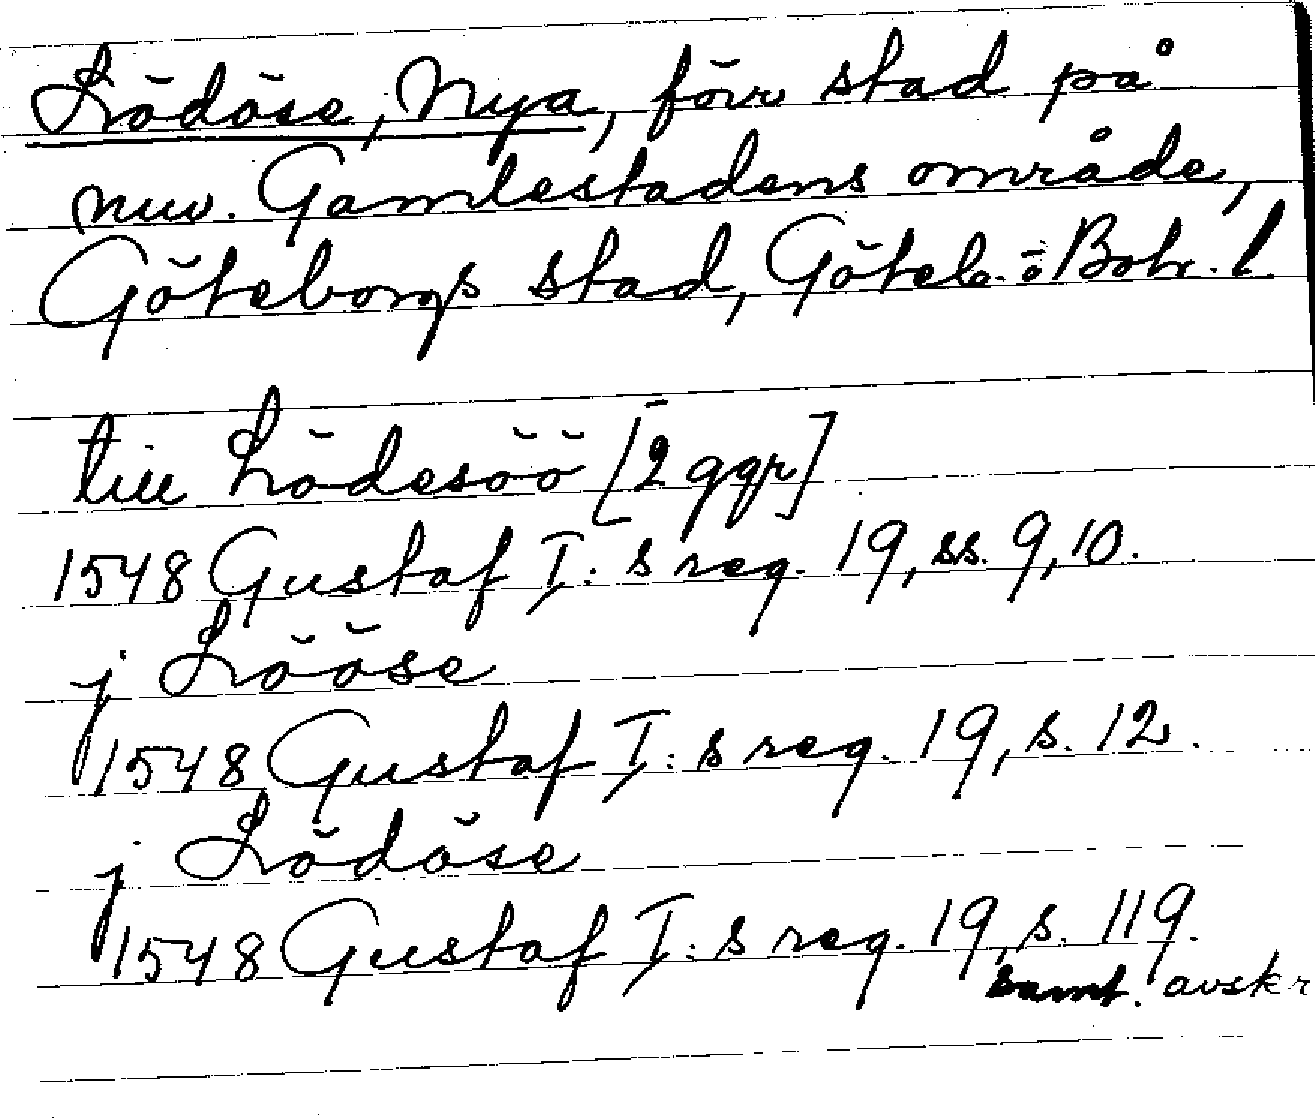 Lödöse, Nya, förr stad på
nuv. Gamlestadens område,
Göteborgs stad, Göteb. o Boh. l.
till Lödesöö [2 ggr]
1548 Gustaf I:s reg. 19, ss. 9, 10.
j Lööse
1548 Gustaf I:s reg. 19, s. 12.
j Lödöse
1548 Gustaf I:s reg. 19, s. 119.
samt. avskr